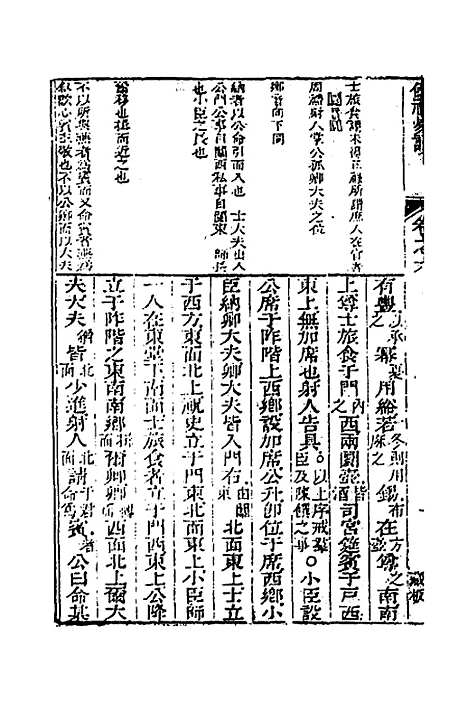 儀禮易讀
士旅食謂未得正祿所謂庶人在官者
周禮射人掌公孤卿大夫之位
鄉音向下同
納者以公命引而入也 士大夫出入
公門公事自闑西私事自闑東 師長
也小臣之長也
爾移也揖而近之也
不以所與燕者爲賓而又命賓者燕爲
序歡心賓主敬也不以公卿而以大夫
有豐以承尊之冪用綌若冬則用錫布在方壺之南南
上尊士旅食于門內之西兩圜壺皆酒司宮筵賓于戸西
東上無加席也射人告具○以上序戒羣臣及陳饌之事○小臣設
公席于阼階上西鄉設加席公升卽位于席西鄉小
臣納卿大夫卿大夫皆入門右由闑東北面東上士立
于西方東面北上祝史立于門東北面東上小臣師
一人在東堂下南面士旅食者立于門西東上公降
立于阼階之東南南鄉揖爾卿卿西面北上爾大
夫大夫稍北面皆少進射人北面請于君者請命賓公曰命某
藏板